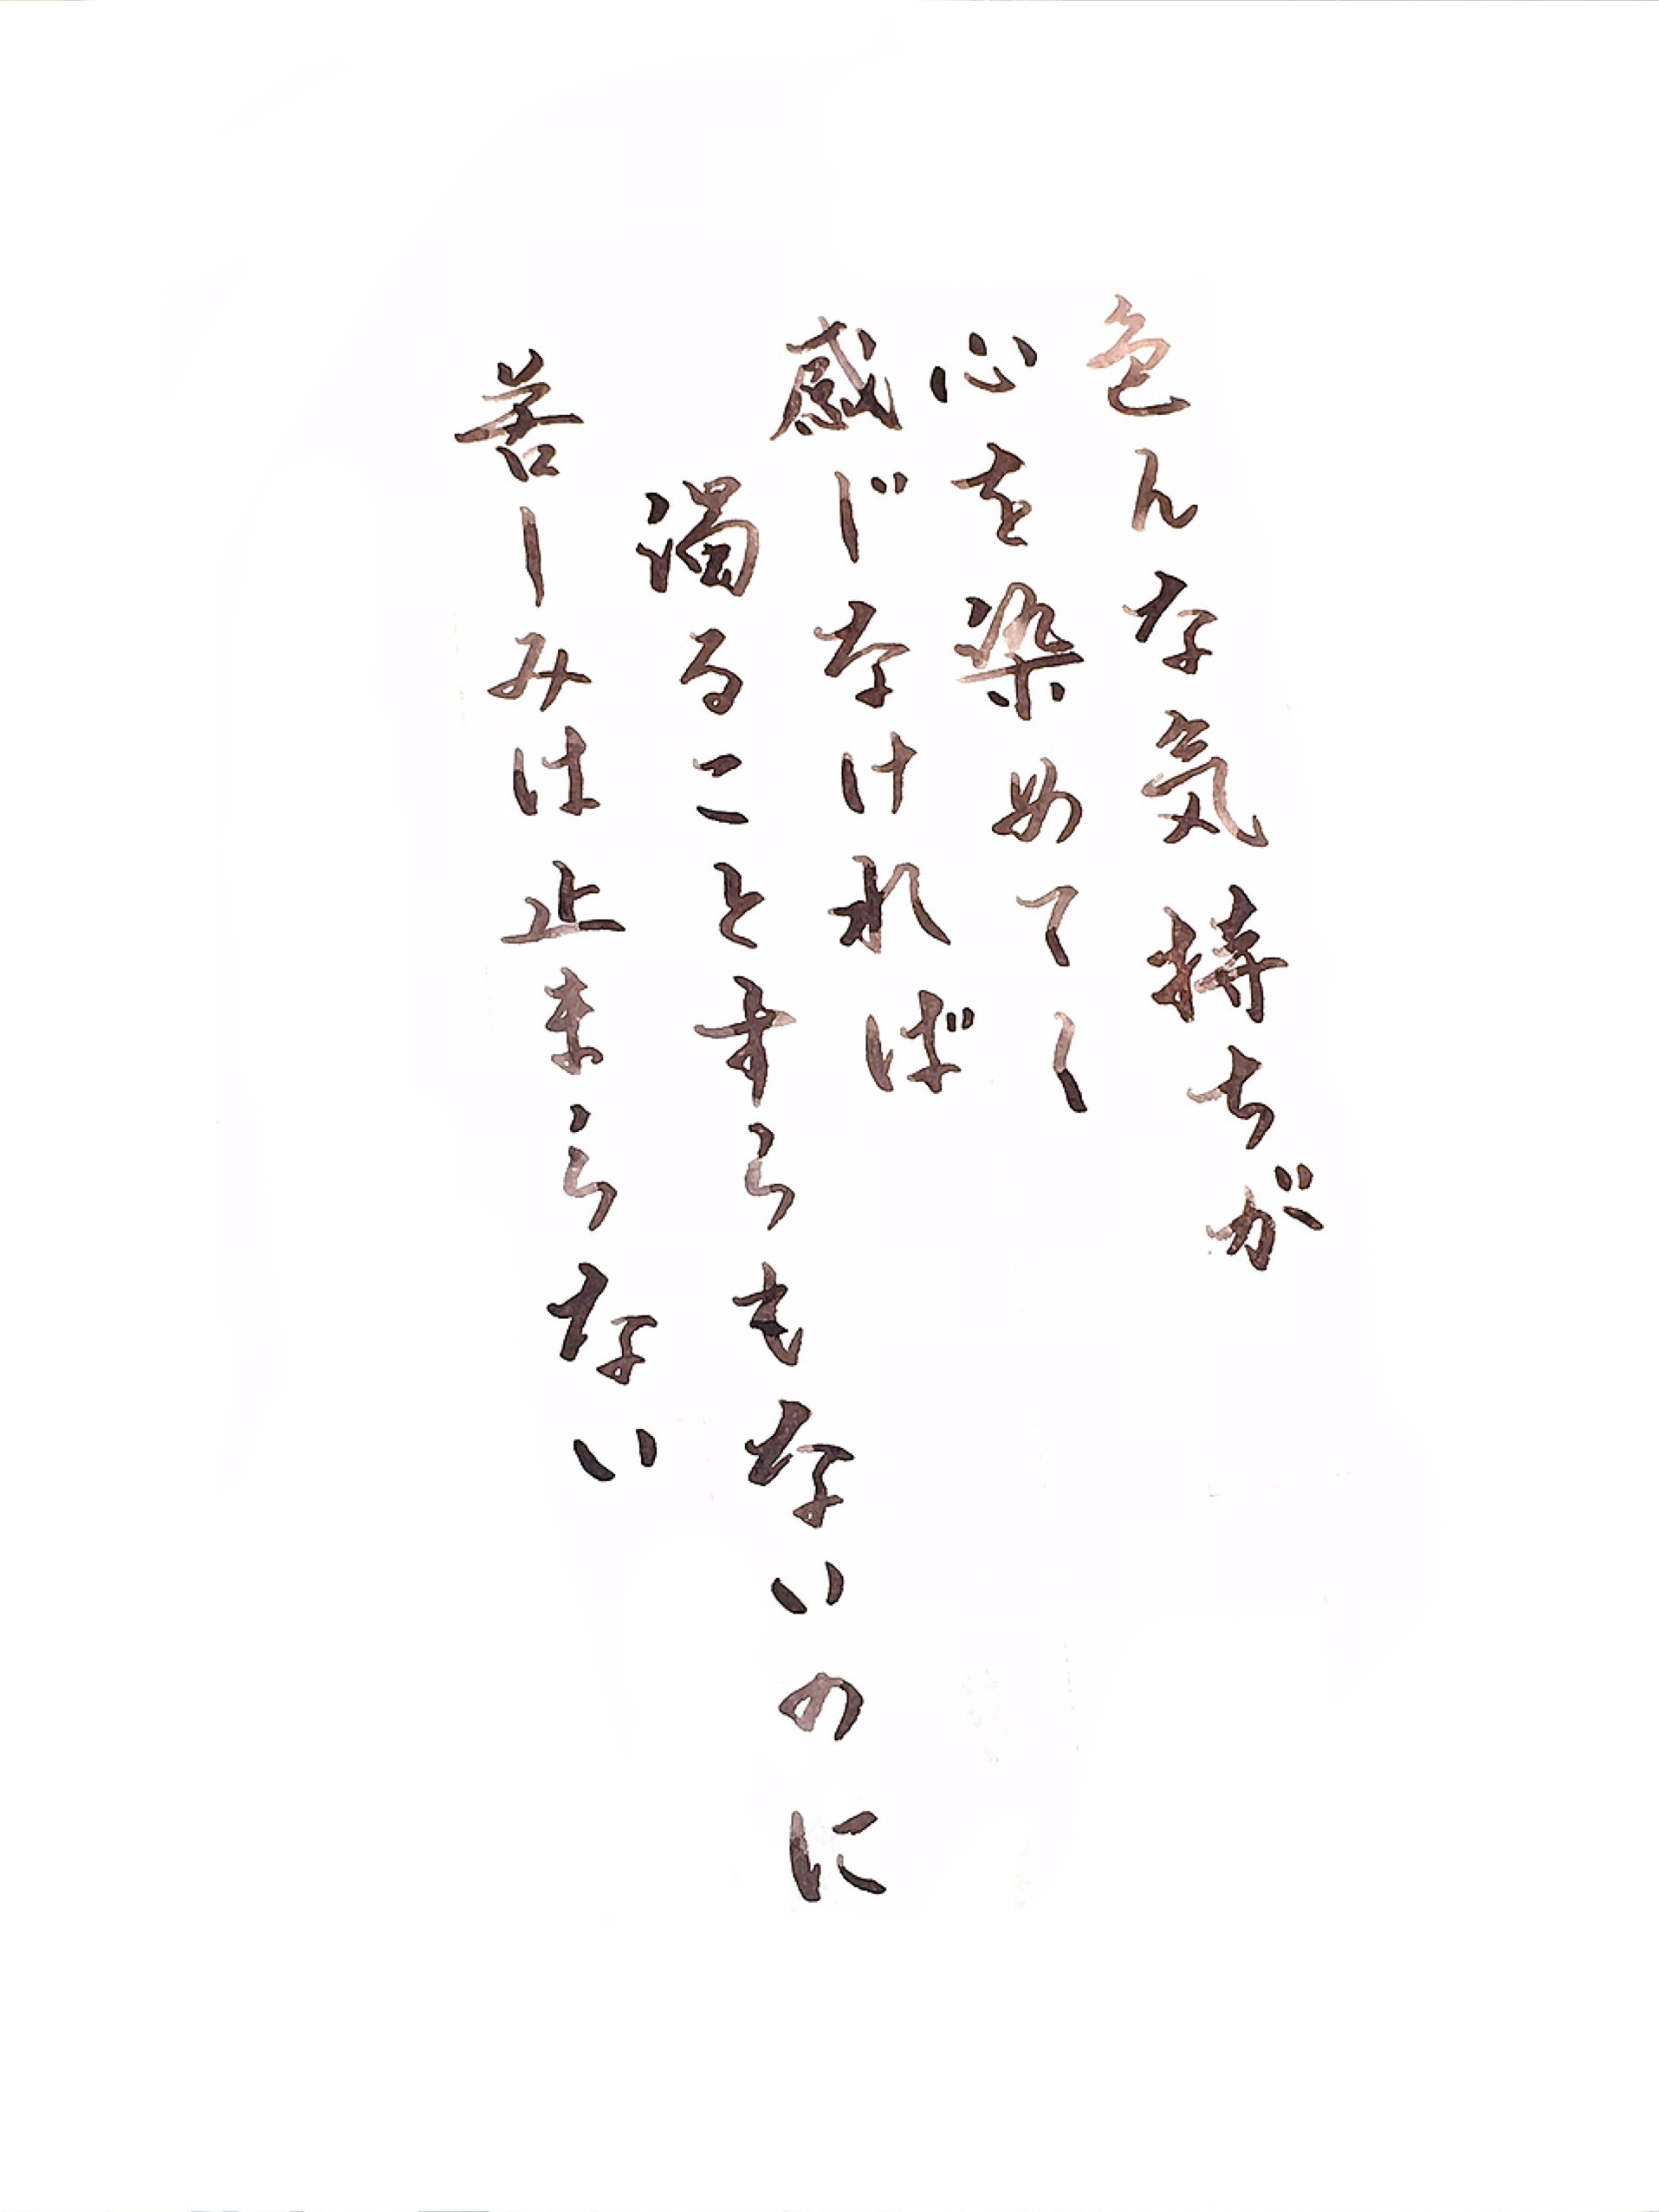 色んな気持ちが
心を染めてく
感じなければ
濁ることすらもないのに
苦しみは止まらない